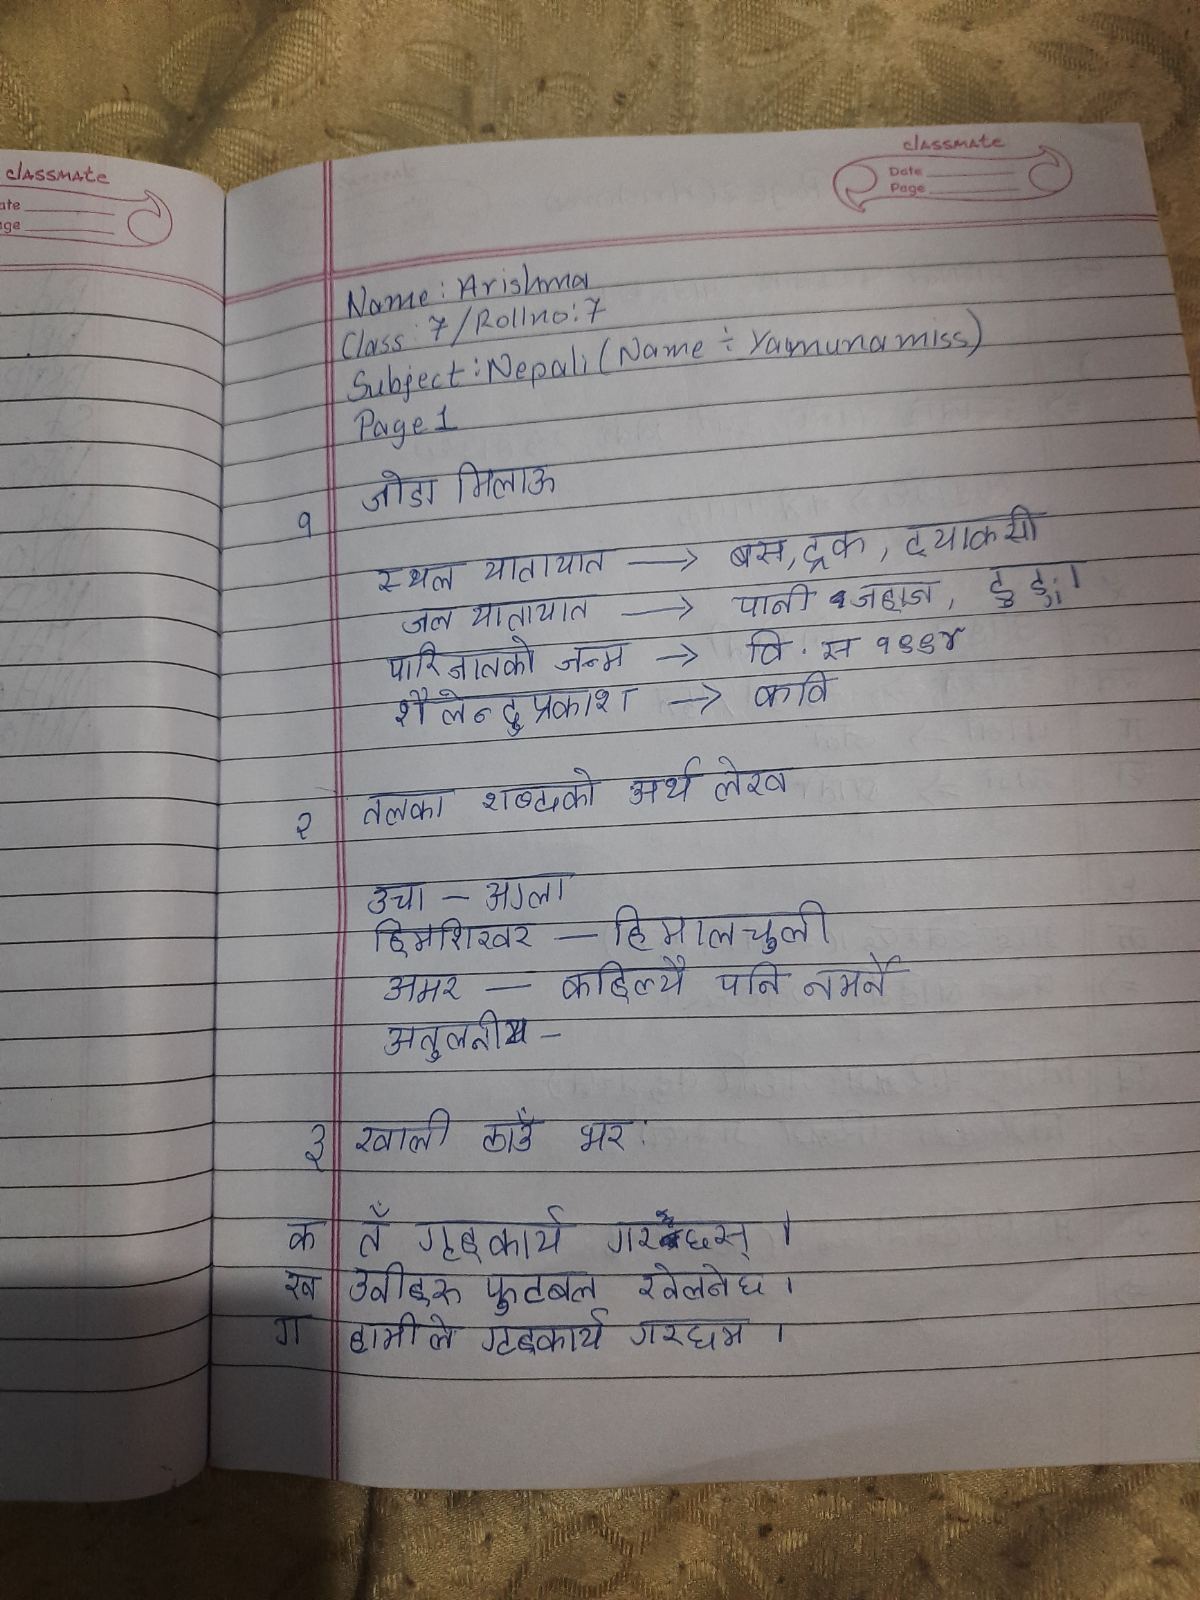 classmate
ate
age
classmate
Date
Page
Name: Arishma
Class: 7/Rollno:7
Subject: Nepali (Name ÷ Yamuna miss)
Page 1
१ जोडा मिलाऊ
स्थल यातायात → बस, ट्रक, ट्याकसी
जल यातायात → पानी जहाज, डुङ्गा
पारिजातको जन्म → वि.स १९९४
शैलेन्दुप्रकाश → कवि
२ तलका शब्दको अर्थ लेख
उचा - अग्ला
हिमशिखर - हिमालचुली
अमर - कहिल्यै पनि नमर्ने
अतुलनीय -
३ खाली ठाउँ भर:
क तँ गृहकार्य गरछस् ।
ख उनीहरु फुटबल खेलनेछ ।
ग हामीले गृहकार्य गरछम ।